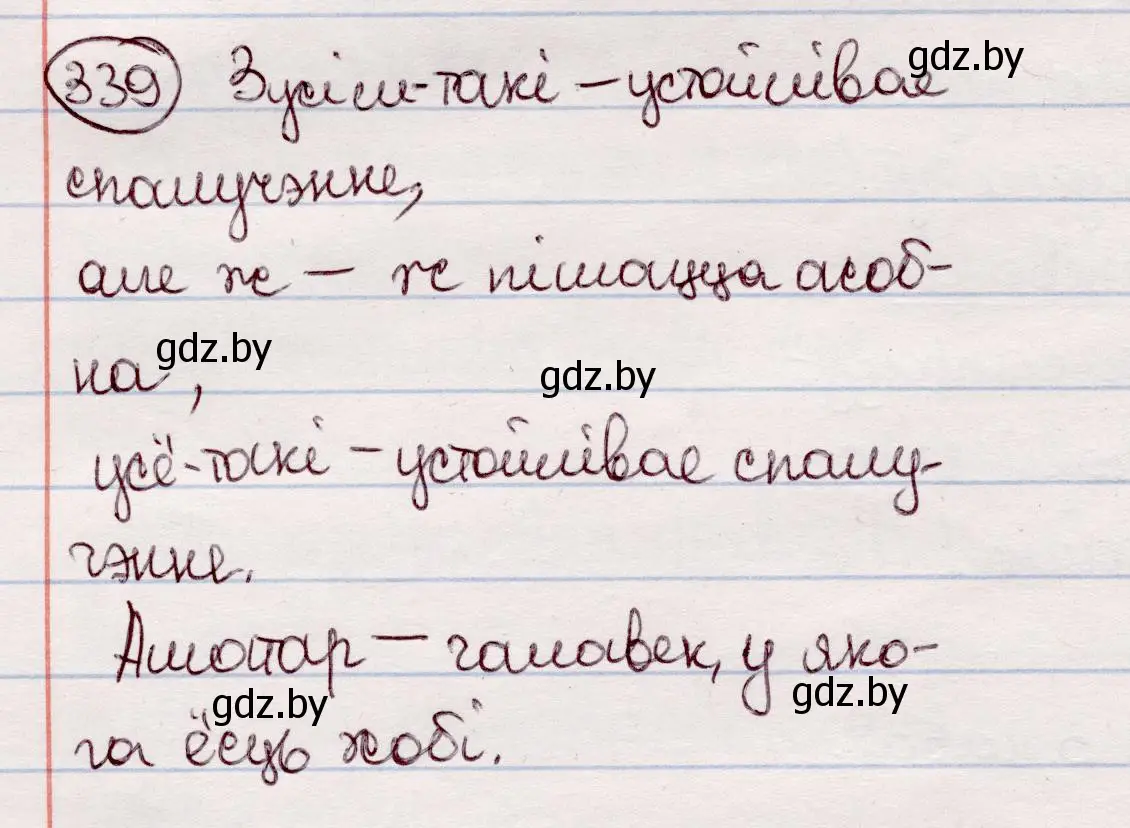 339 Зусім-такі – устойлівае
gdz.by
спалучэнне,
але ж – ж пішацца асоб-
gdz.by
на,
gdz.by
усё-такі – устойлівае спалу-
чэнне.
Аматар – чалавек, у яко-
gdz.by
gdz.by
га ёсць хобі.